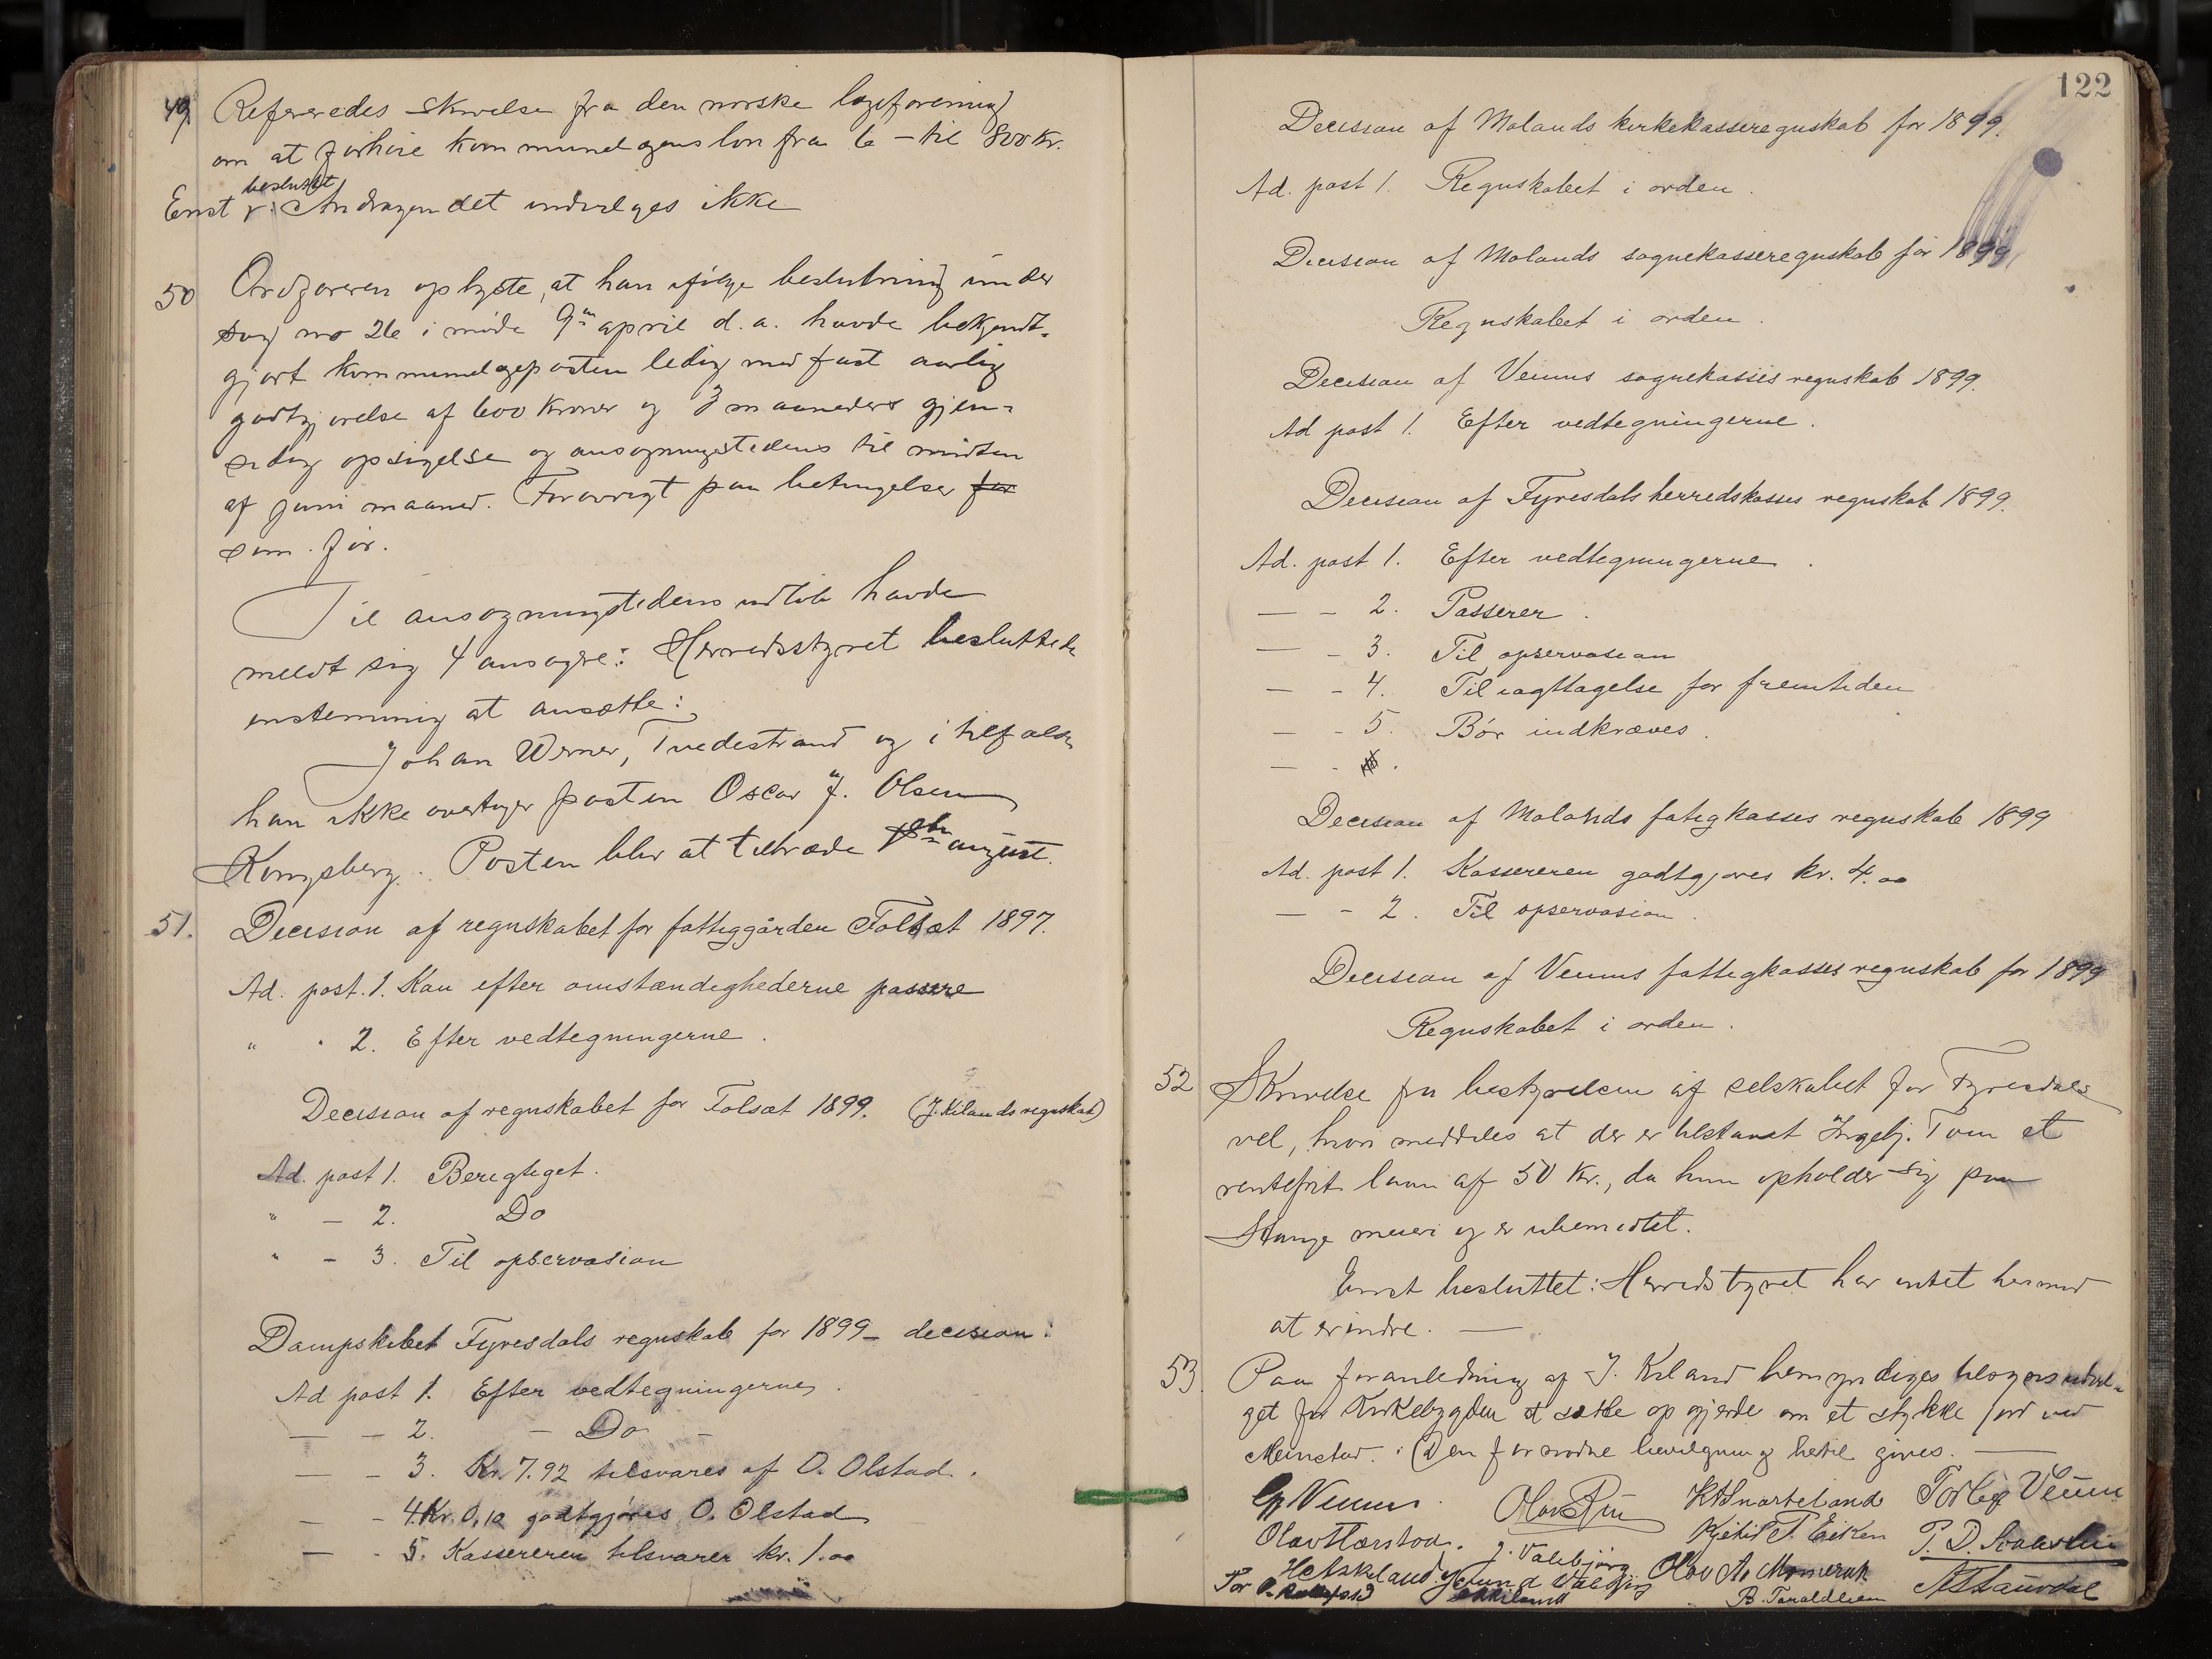 49. Refereredes skrivelse fra den norske lægeforening
om at forhøie kommunelægens løn fra 6 - til 800 kr.
Enst. besluttet: Andragendet indvilges ikke
50 Ordføreren oplyste, at han ifølge beslutning under
sag no 26 i møde 9de april d.a. havde bekjendt-
gjort kommunelægeposten ledig med fast aarlig
godtgjørelse af 600 kroner og 3 maaneders gjen-
sidig opsigelse og ansøgningstidens til midten
af juni maaned. Forøvrigt paa betingelser for
som før.
Til ansøgningstidens udløb havde
meldt sig 4 ansøgere: Herredsstyret besluttede
enstemmig at ansætte:
Johan Werner, Tvedestrand og i tilfælde
han ikke overtager posten Oscar J. Olsen
Kongsberg. Posten blir at tiltræde august.
51. Decision af regnskabet for fattiggården Folsæt 1897.
Ad. post. 1. Kan efter omstændighederne passere
" " 2. Efter vedtegningerne.
Decision af regnskabet for Folsæt 1899. (J. Kilands regnskab)
Ad. post 1. Berigtiget.
" - 2. Do
" - 3. Til opservasion
Dampskibet Fyresdals regnskab for 1899 - decision:
Ad post 1. Efter vedtegningerne.
— - 2. - Do -
— - 3. Kr. 7.92 tilsvares af O. Olstad.
— - 4. Kr. 0,10 godtgjøres O. Olstad
— - 5. Kassereren tilsvarer kr. 1.00
122
Decision af Molands kirkekasseregnskab for 1899.
Ad. post 1. Regnskabet i orden.
Decision af Molands sognekasseregnskab för 1899,
Regnskabet i orden.
Decision af Veums sognekasses regnskab 1899.
Ad post 1. Efter vedtegningerne.
Decision af Fyresdals herredskasses regnskab 1899.
Ad. post 1. Efter vedtegningerne.
— - 2. Passerer.
— - 3. Til opservasion
— - 4. Til iagttagelse for fremtiden
— - 5. Bör indkræves.
— - .
Decision af Molands fatigkasses regnskab 1899
Ad. post 1. Kassereren godtgjøres kr. 4.00
— - 2. Til opservasion.
Decision af Veums fattigkasses regnskab for 1899
Regnskabet i orden.
52 Skrivelse fra bestyrelsen af selskabet for Fyresdals
vel, hvori meddeles at der er tilstaaet Ingebj. Tveit et
rentefrit laan af 50 kr., da hun opholder sig paa
Stange meieri og er ubemidlet.
Enst besluttet: Herredstyret har intet hermed
at erindre. —
53. Paa foranledning af J. Kiland bemyndiges tilsynsudval-
get for Kirkebygden at sætte op gjerde om et stykke jord ved
Meinstad. Den fornødne bevilgning hertil gives. —
Veum. Olav Rui K H Snarteland Torleif Veum
Olav Harstad. J. Valebjörg Kjetil T. Eiken
H Askeland Olav A. Momrak
B. Taraldlien